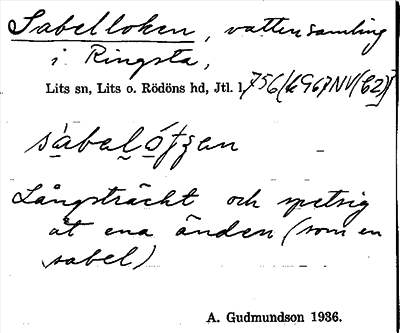 Sabelloken, vattensamling
i Ringsta,
Lits sn, Lits o. Rödöns hd, Jtl. l.
Långsträckt och spetsig
åt ena änden (som en
sabel)
A. Gudmundson 1936.